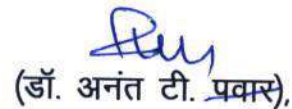 (डॉ. अनंत टी. पवार),